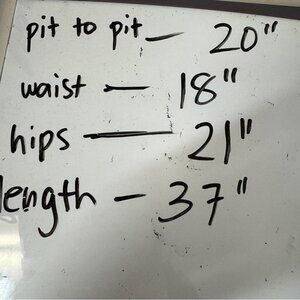 pit to pit — 20"
waist — 18"
hips — 21"
length — 37"